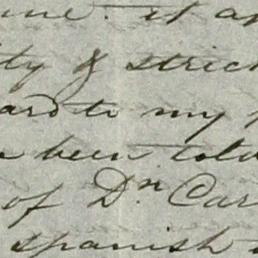 ty & strick
ard to my
been told
of Dn Car
spanish